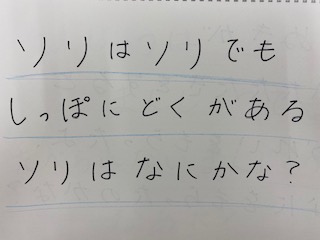 ソリはソリでも
しっぽにどくがある
ソリはなにかな?